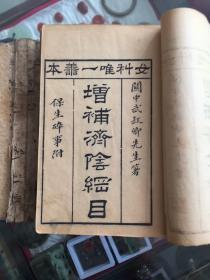 女科唯一善本
關中武叔卿先生著
增補濟陰綱目
保生碎事附